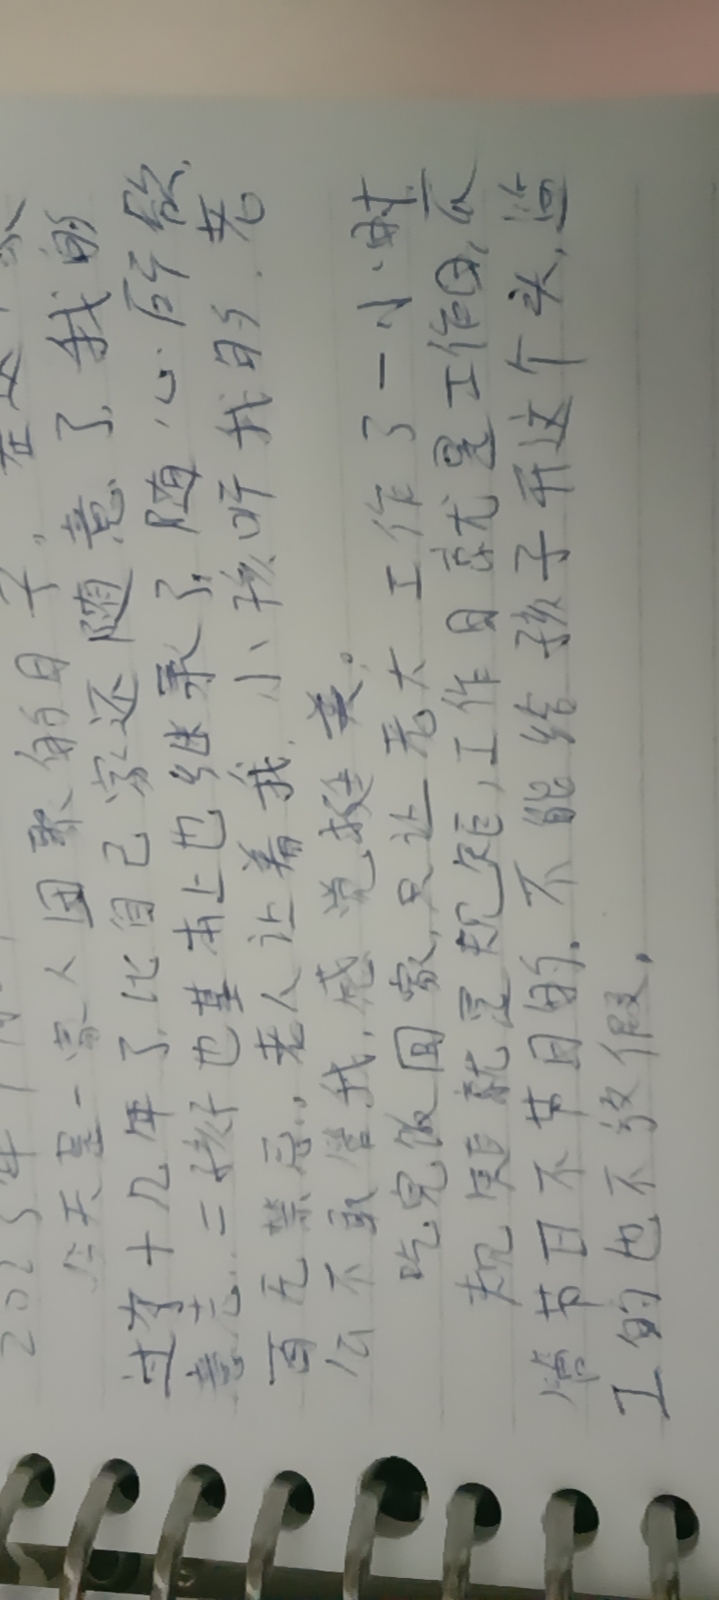 2025年1月
今天是一家人团聚的日子,在这
过了十几年了,比自己家还随意了,我的
意志.二孩子也基本上也继承了,随心所欲
百无禁忌.,老人让着我,小孩听我的,老
公不敢管我,感觉挺美。
吃完饭回家,只让老大工作了一小时
规矩就是规矩,工作日就是工作日,
管节日不节日的.不能给孩子开这个头,监
工的也不放假。